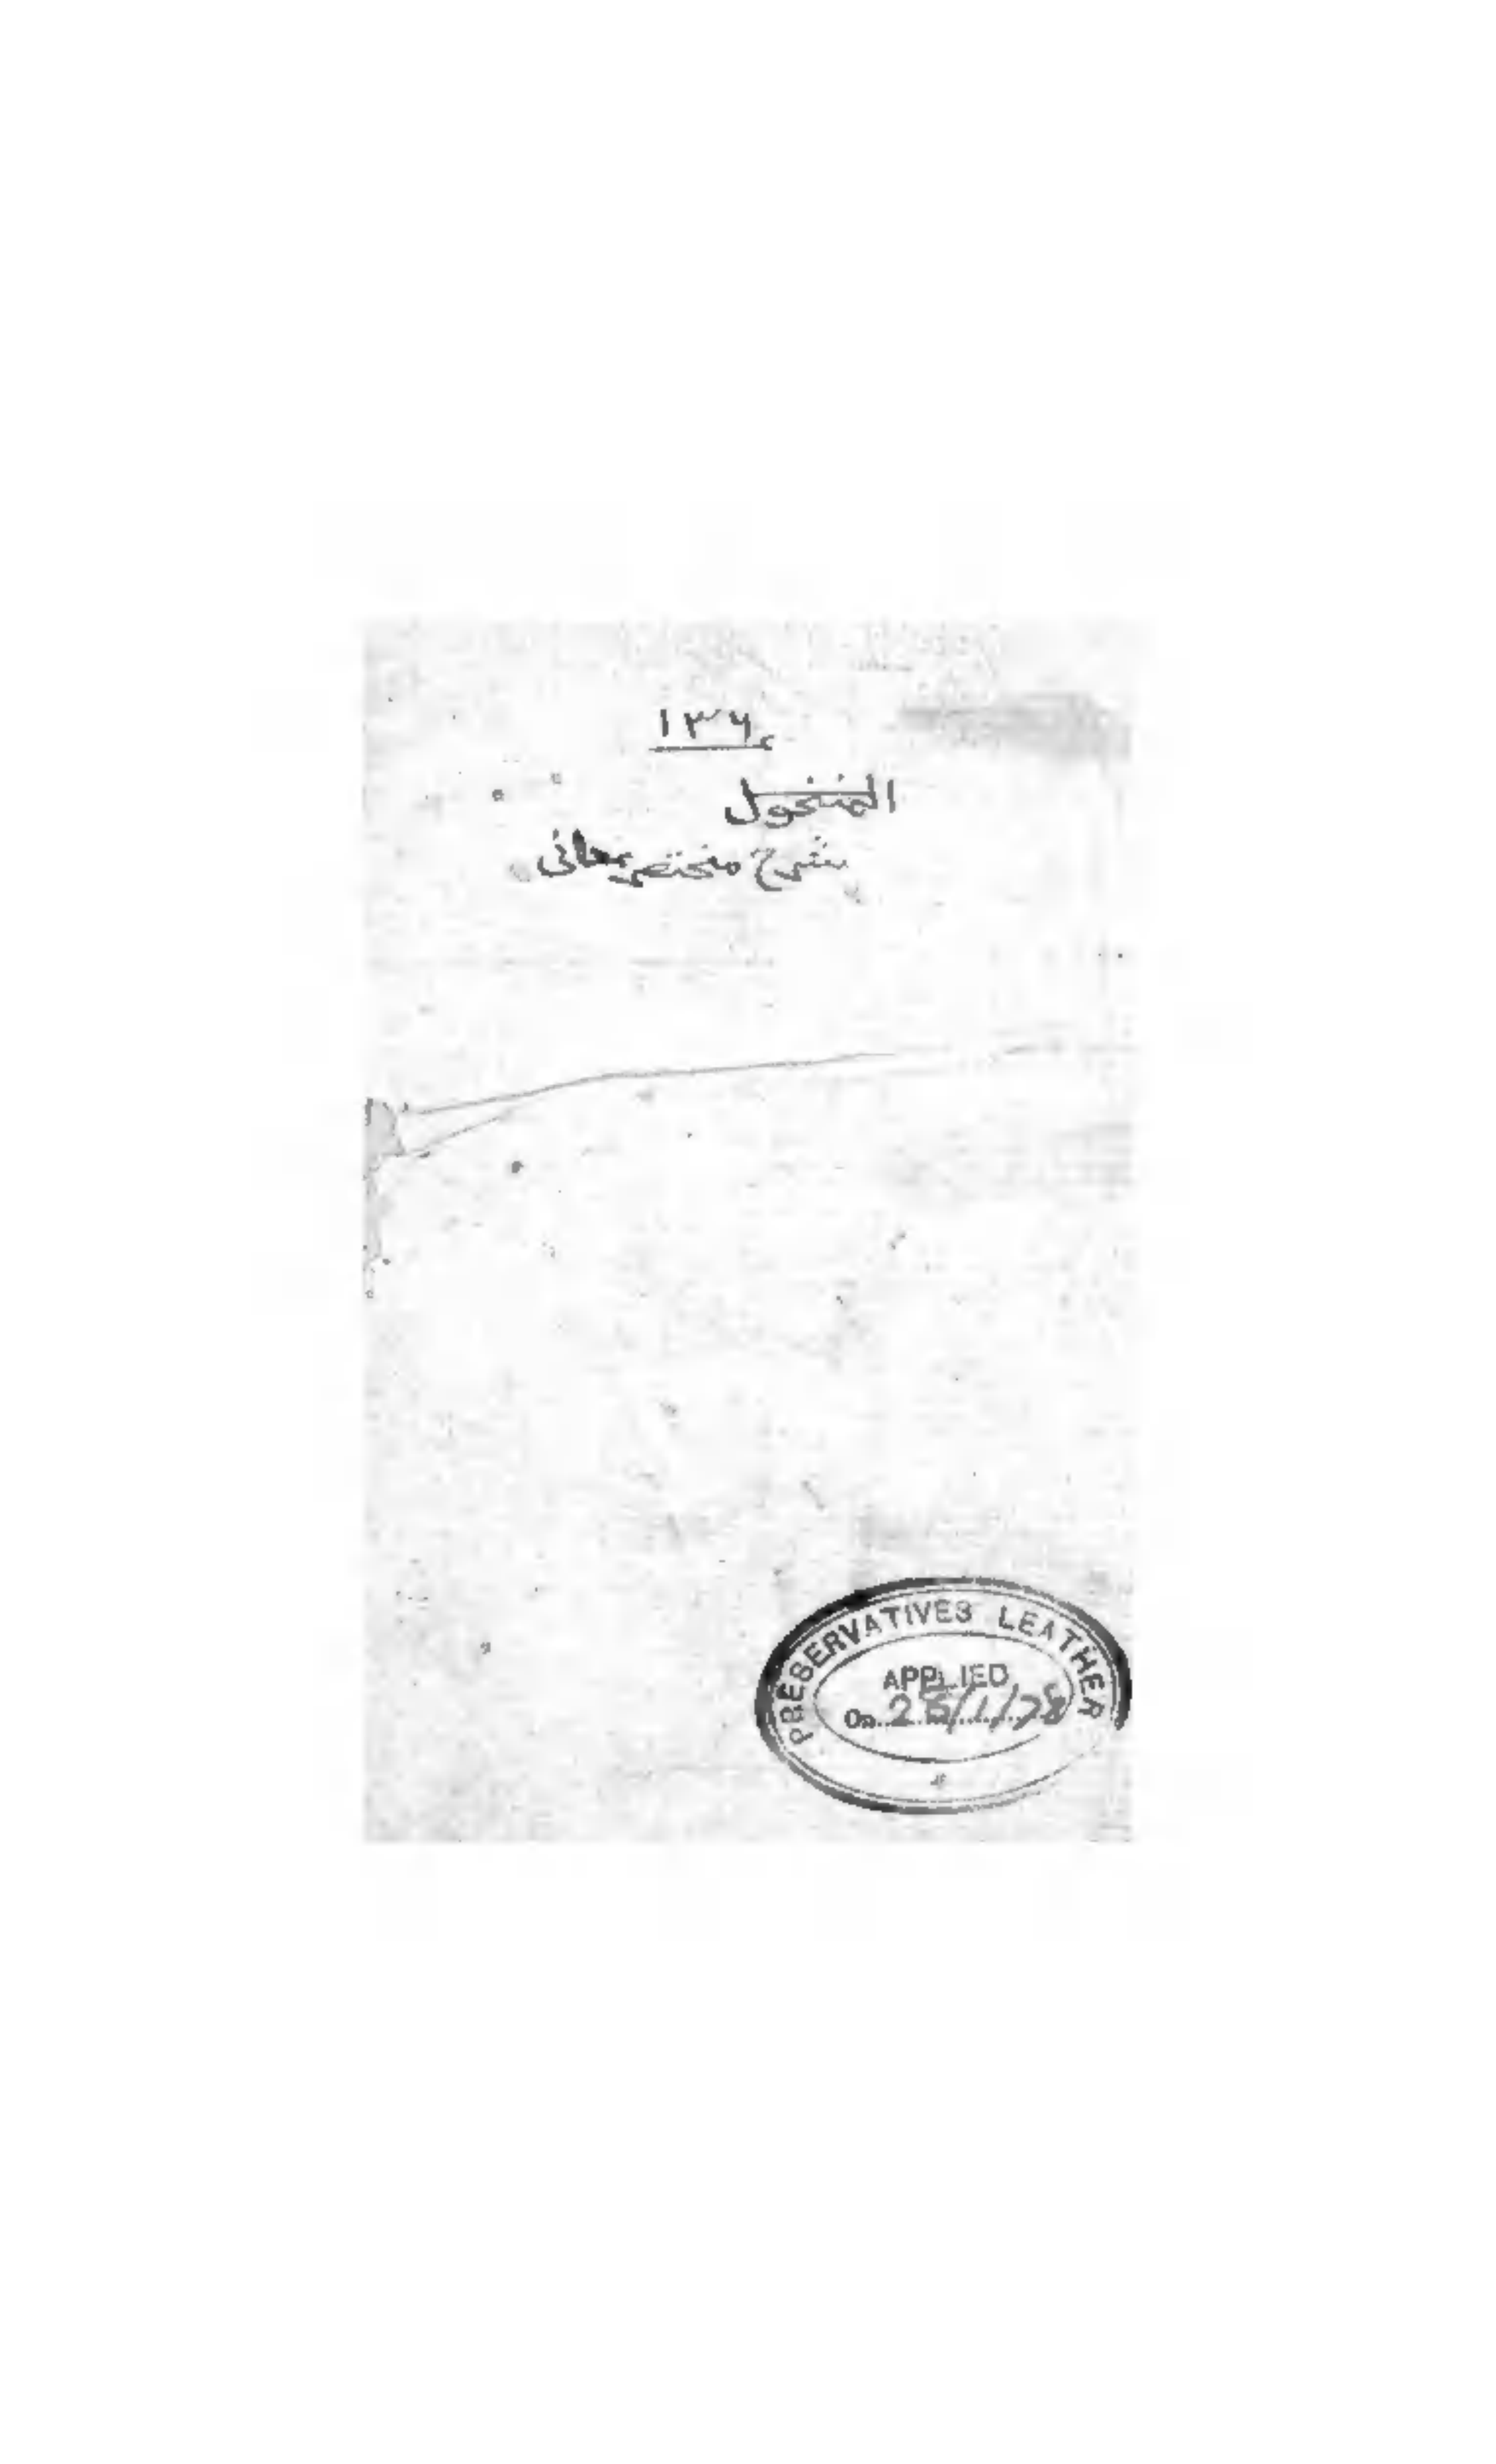 ١٣٦
المنخول
شرح مختصر معانی
PRESERVATIVES LEATHER
APPLIED
On 25/1/78